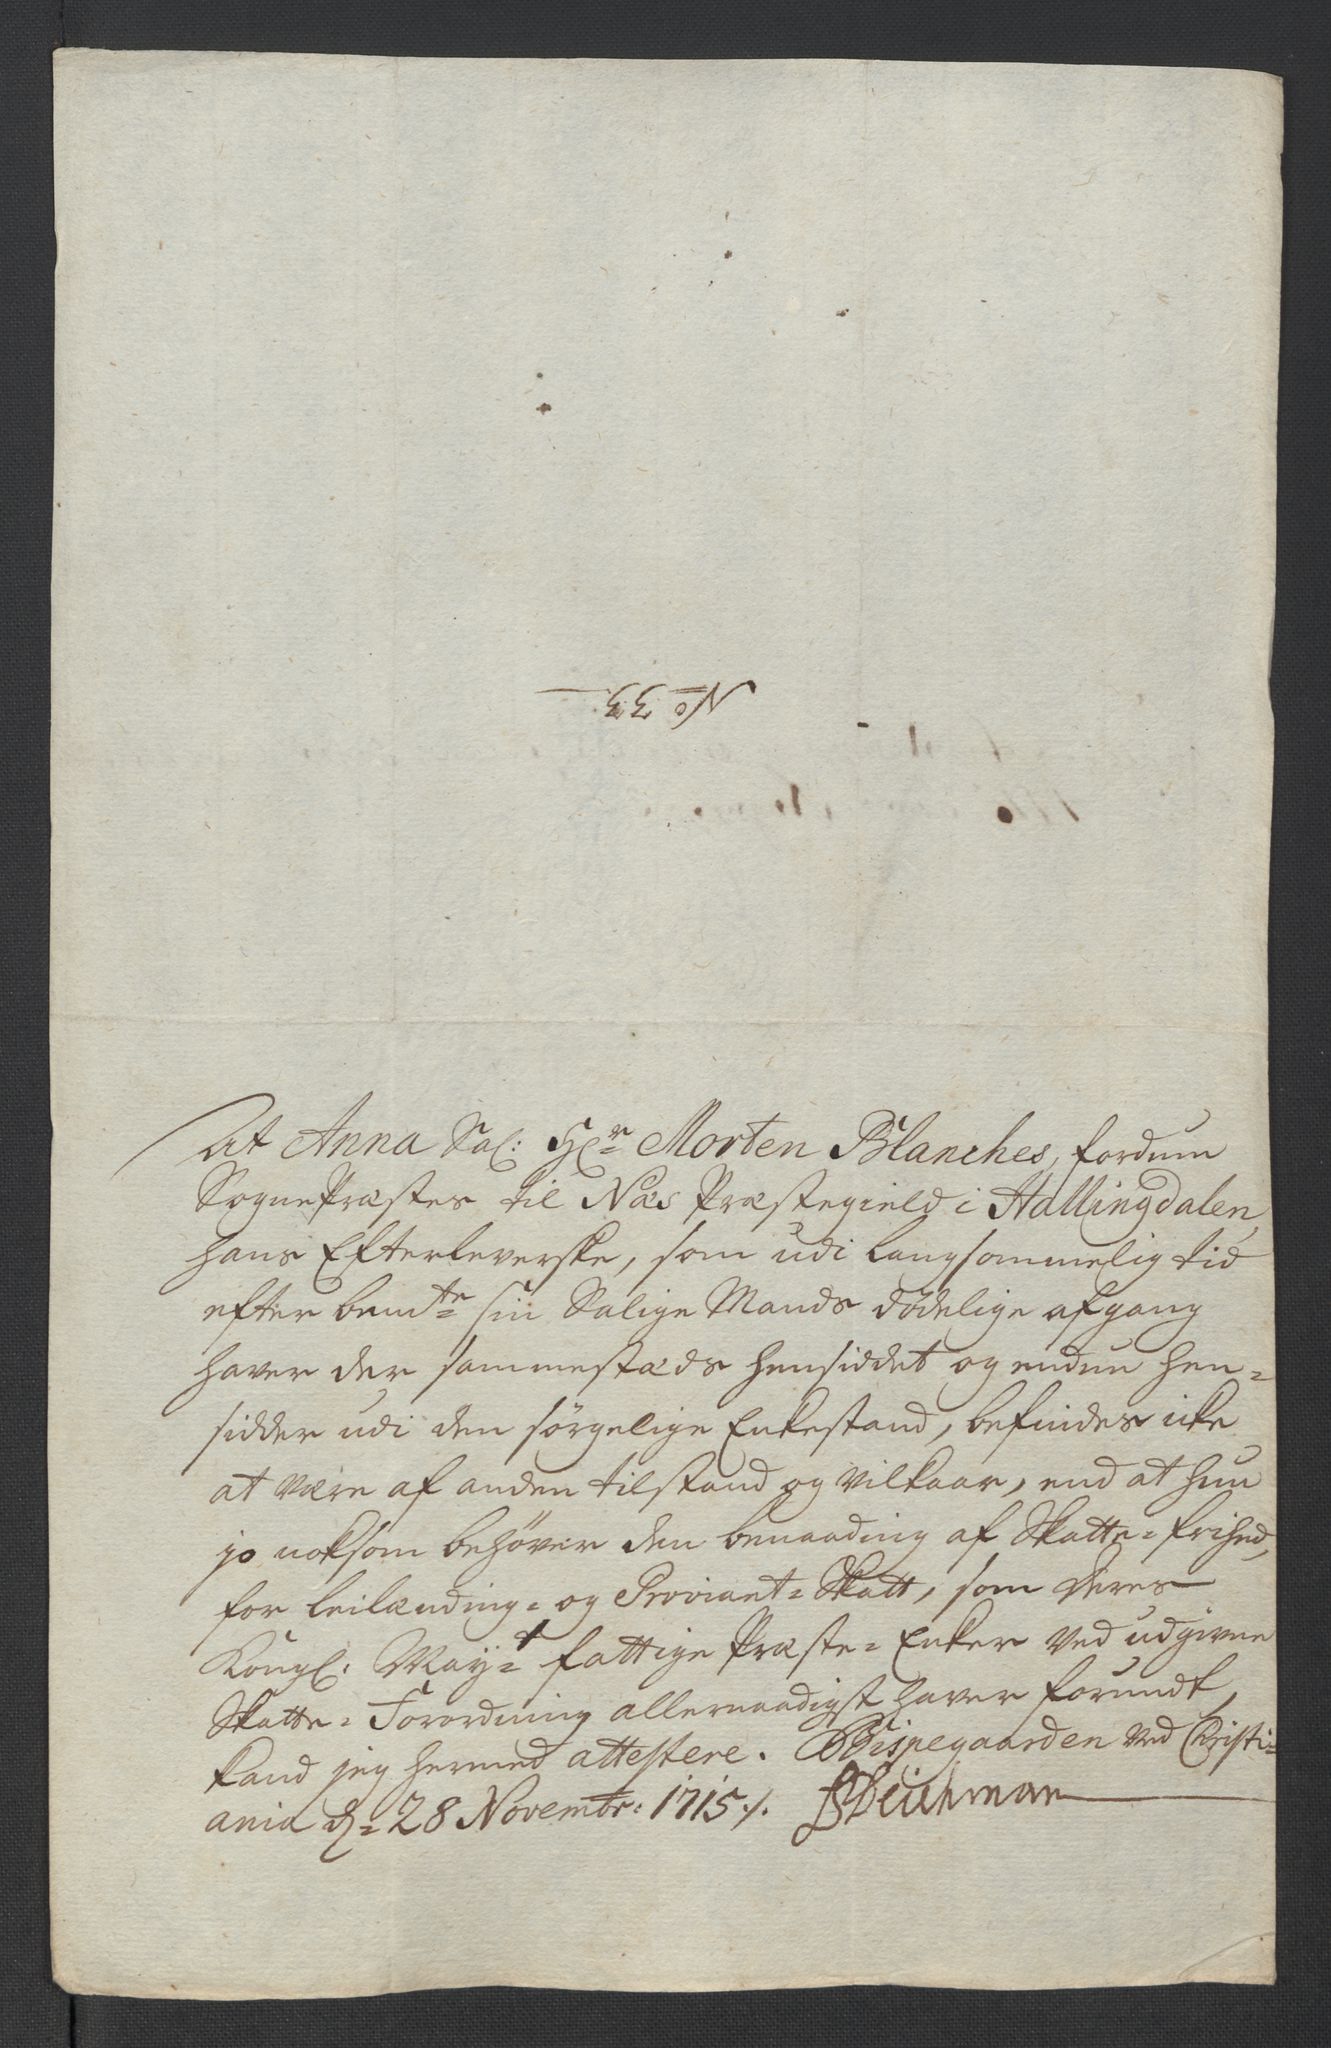 No 33
At Anna Sal: Hr Morten Blanches, fordum
SognePræstes til Næs Præstegield i Hallingdalen,
hans Efterleverske, som udi langsommelig tid
efter bemte sin Salige Mands dödelige afgang
haver der sammestæds hensiddet og endnu hen=
sidder udi den sörgelige Enkestand, befindes icke
at være af anden tilstand og vilkaar, end at hun
jo noksom behöver den benaading af Skatte=frihed,
for leilænding= og Proviant=Skatt, som Deres
Kongl: Mayt fattige Præste=Enker ved udgivne
Skatte=Forordning allernaadigst haver forundt,
kand jeg hermed attestere. Bispegaarden ved Christi=
ania d. 28 Novembr: 1715 ./. BDeichman